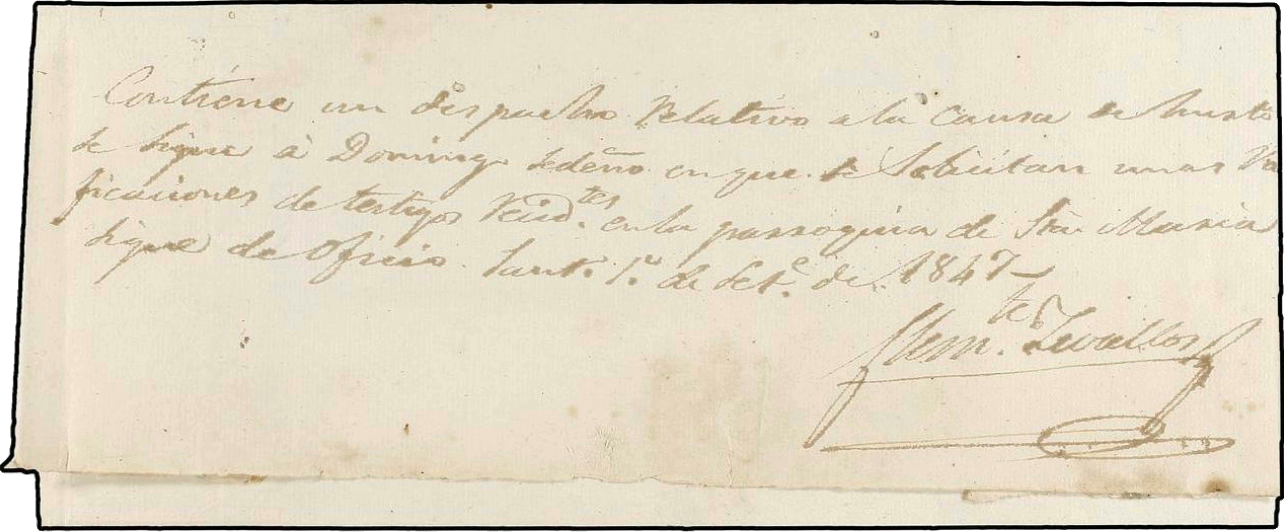 Contiene un despacho Relativo a la Causa de hurto
se sigue á Domingo Sedeño en que se Solicitan unas Ra
ficaciones de testigos Recid.tes en la parroquia de Sta. Maria
sigue de Oficio. Sant.º 1.º de Set.e de 1847
Clem.te Zevallos